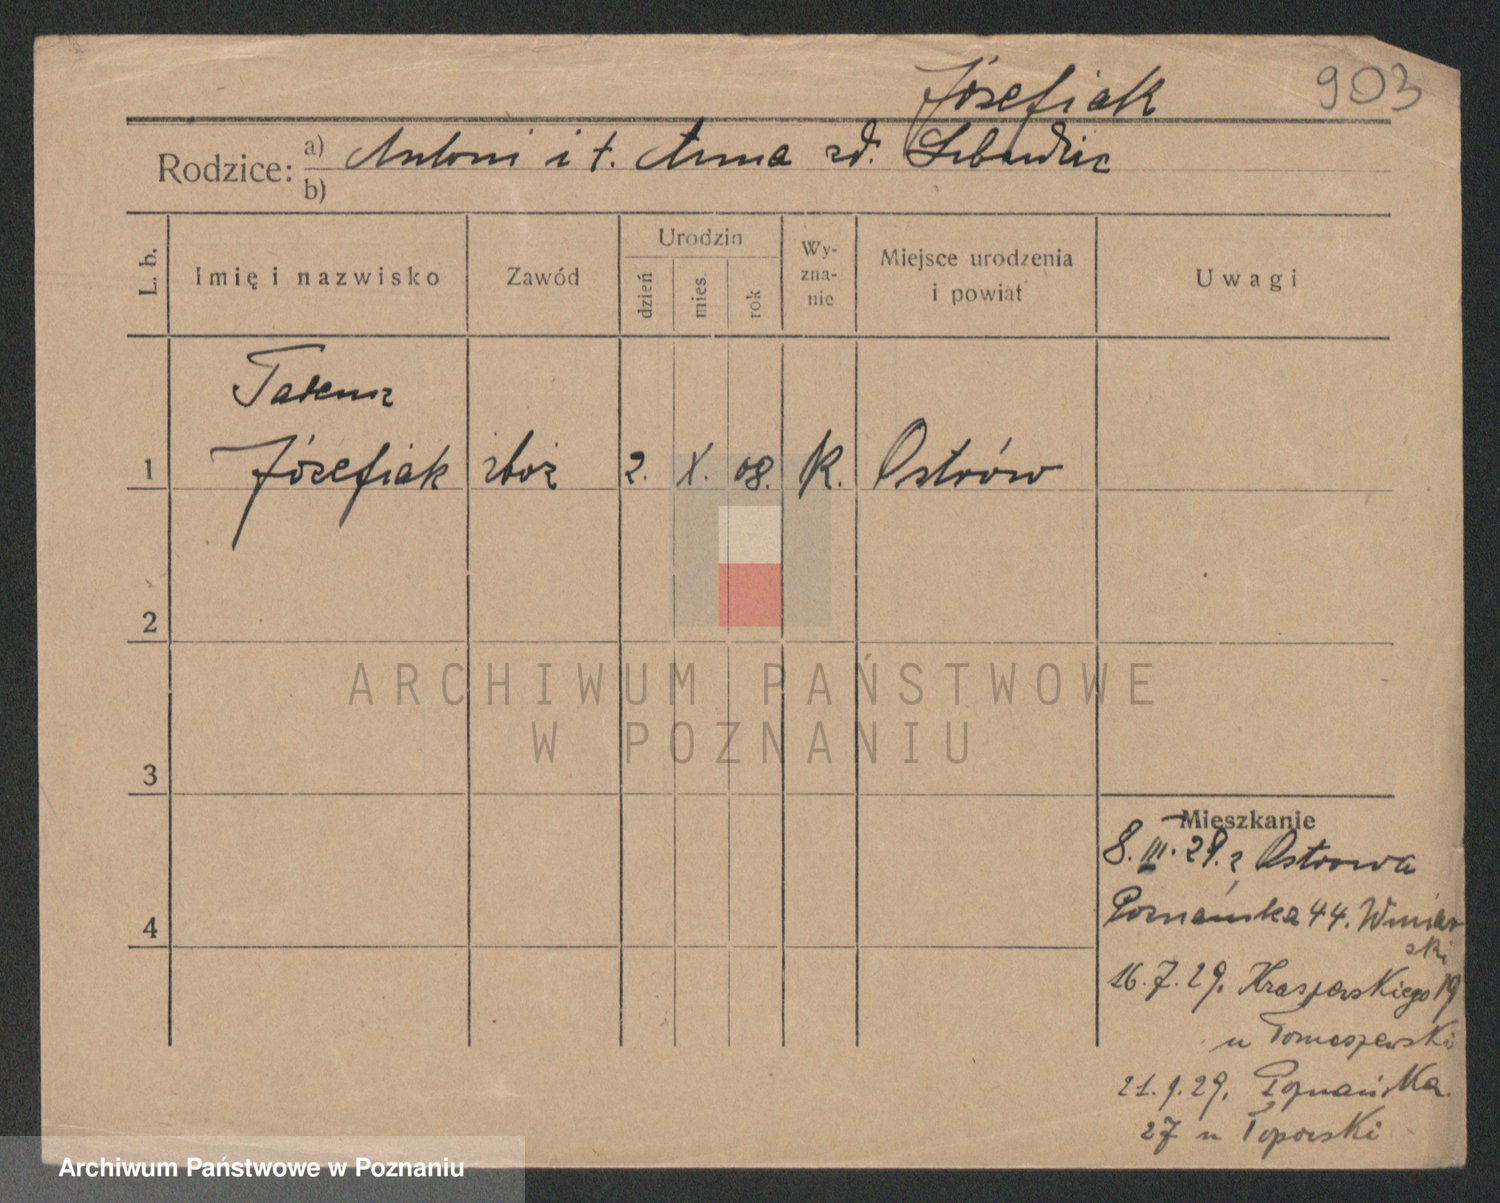 Józefiak
903
Rodzice:
a) Antoni i t. Anna zd.
b)
L. b.
Imię i nazwisko
Zawód
Urodzin
dzień
mies.
rok
Wy-
zna-
nie
Miejsce urodzenia
i powiat
Uwagi
1
Józefiak 2. X. 08. K. Ostrów
2
3
4
Mieszkanie
8. III. 29. z Ostrowa
Poznańska 44. Winiar
ski
16.7.29. Kraszewskiego 19
u Tomaszewski
21.9.29. Poznańska
27 u Toporski
ARCHIWUM PAŃSTWOWE
W POZNANIU
Archiwum Państwowe w Poznaniu